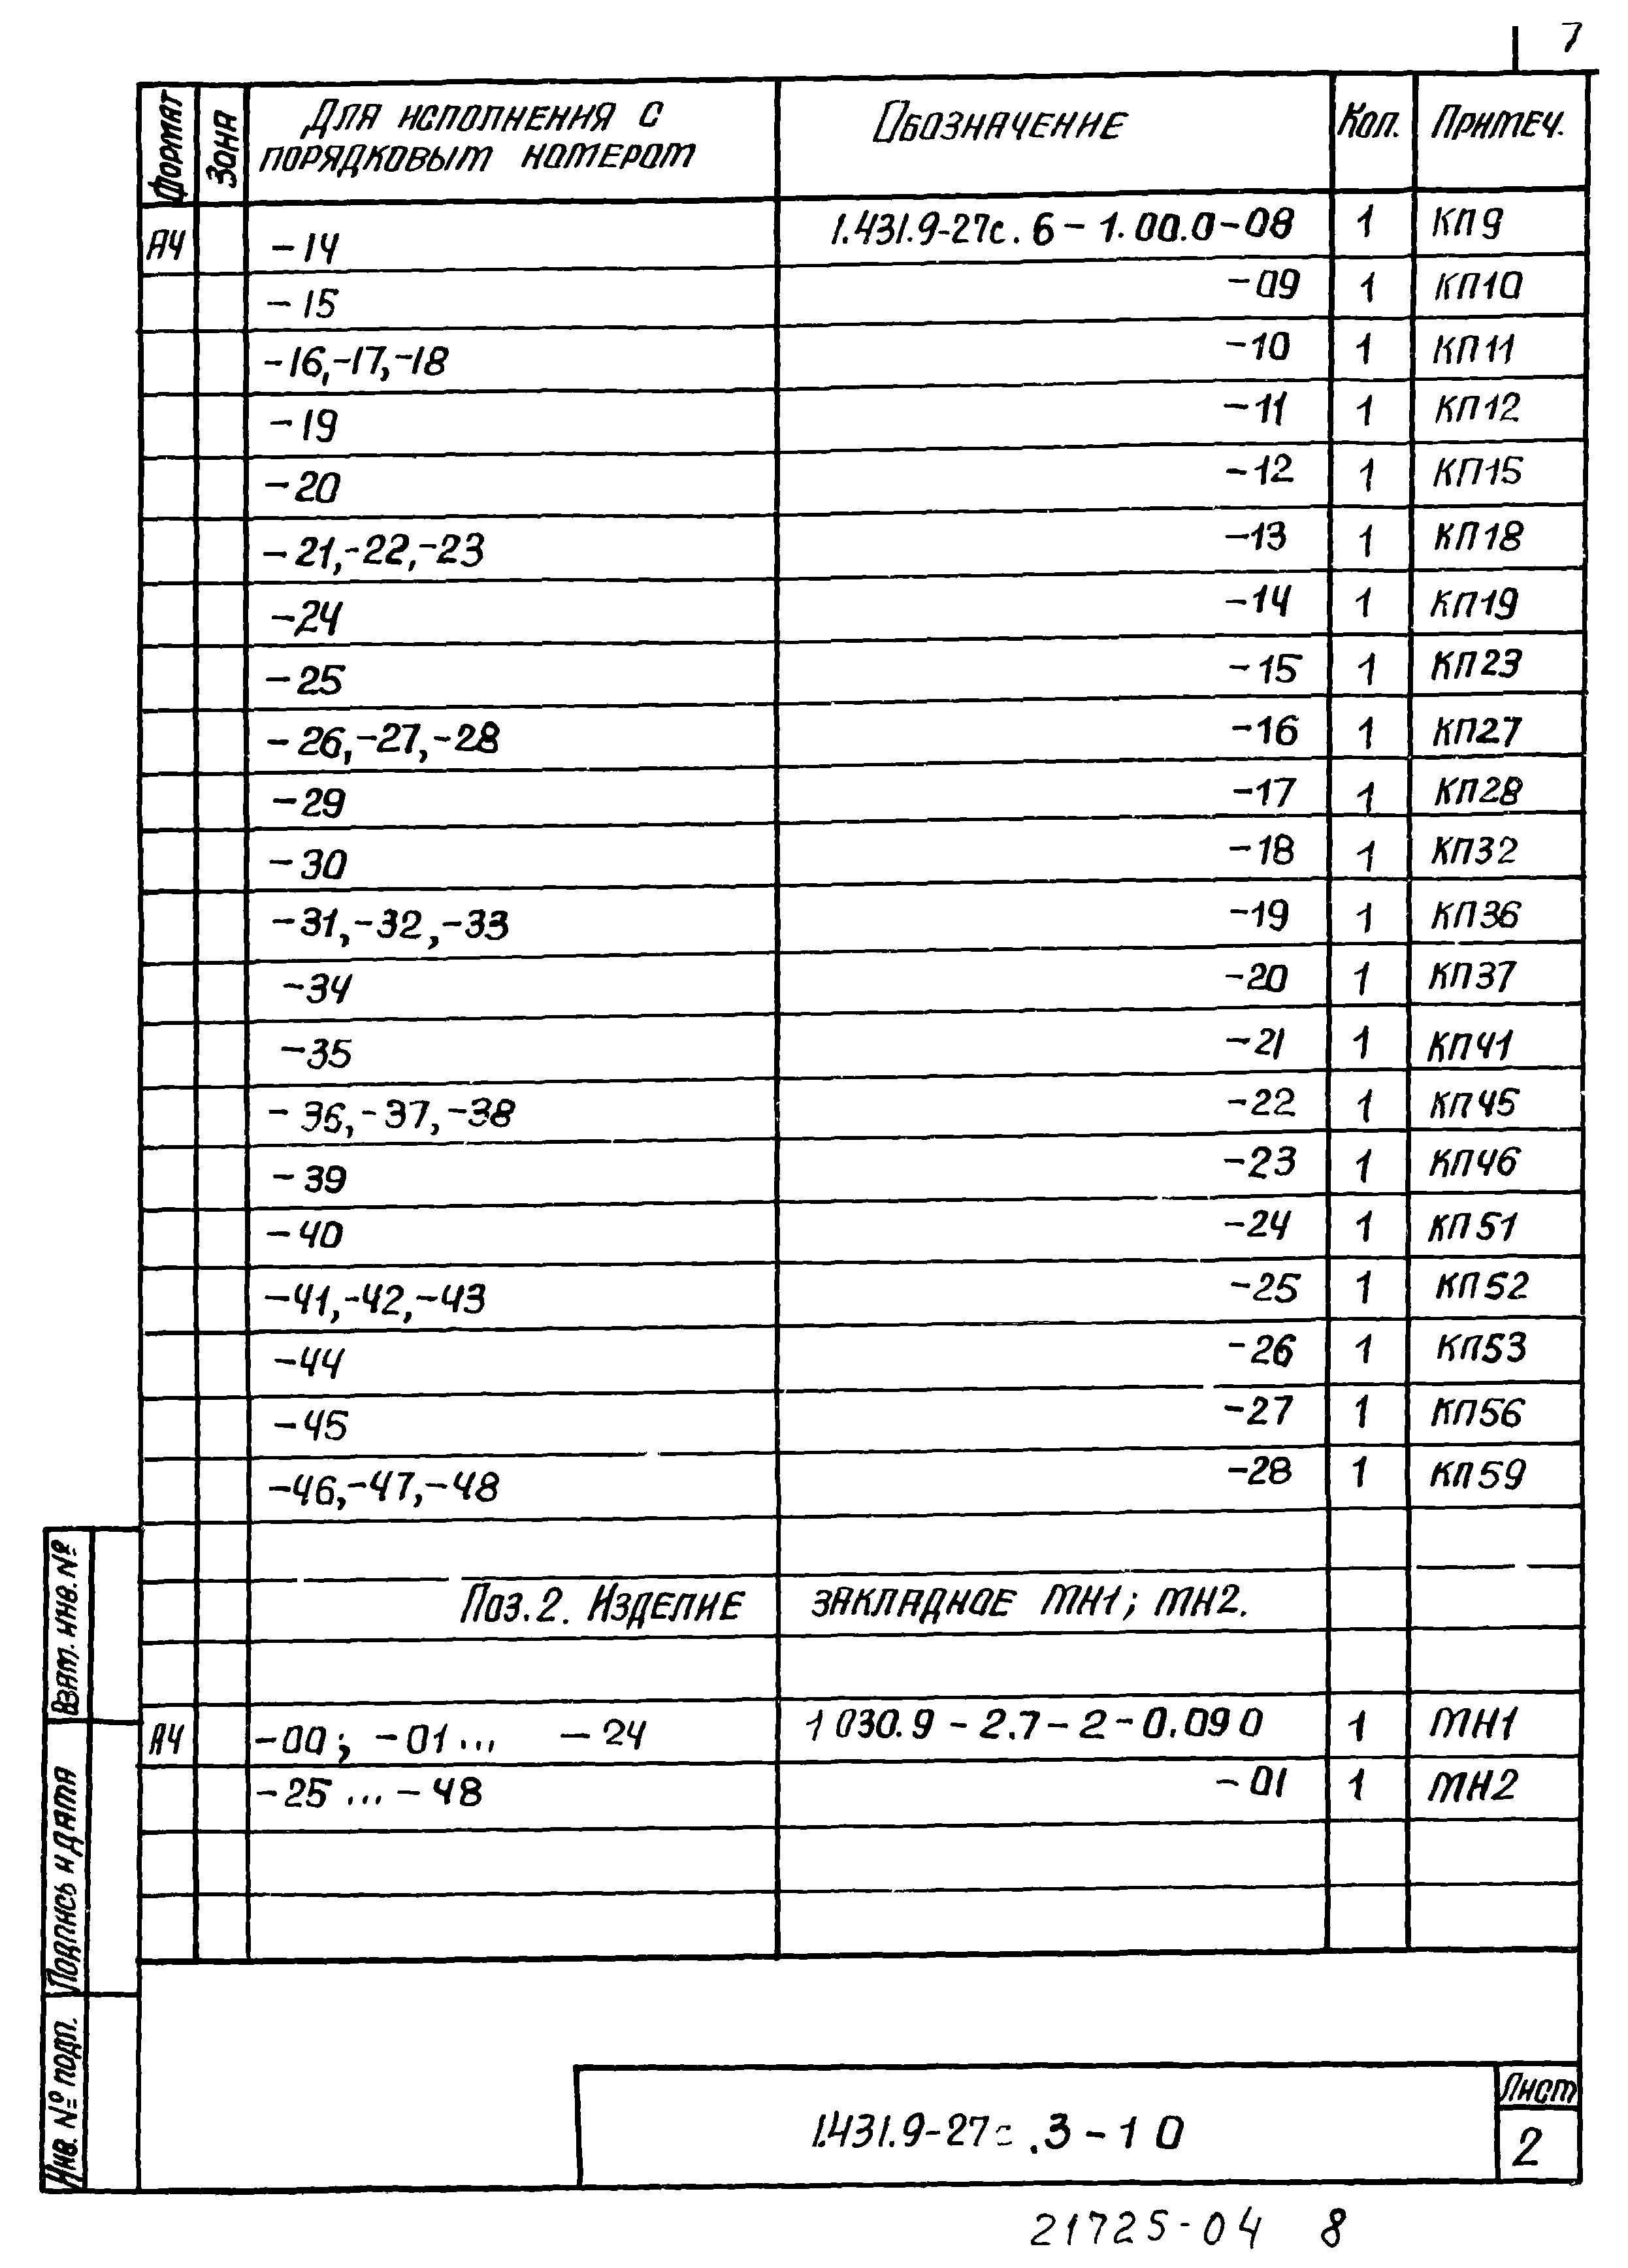 7
Формат Зона Для исполнения с порядковым номером Обозначение Кол. Примеч.
А4 -14 1.431.9-27с.6-1.00.0-08 1 КП9
-15 -09 1 КП10
-16,-17,-18 -10 1 КП11
-19 -11 1 КП12
-20 -12 1 КП15
-21,-22,-23 -13 1 КП18
-24 -14 1 КП19
-25 -15 1 КП23
-26,-27,-28 -16 1 КП27
-29 -17 1 КП28
-30 -18 1 КП32
-31,-32,-33 -19 1 КП36
-34 -20 1 КП37
-35 -21 1 КП41
-36,-37,-38 -22 1 КП45
-39 -23 1 КП46
-40 -24 1 КП51
-41,-42,-43 -25 1 КП52
-44 -26 1 КП53
-45 -27 1 КП56
-46,-47,-48 -28 1 КП59
Поз.2. Изделие закладное МН1; МН2.
А4 -00; -01... -24 1 030.9-2.7-2-0.090 1 МН1
-25...-48 -01 1 МН2
Взам. инв. №
Подпись и дата
Инв. № подп.
1.431.9-27с.3-10
Лист
2
21725-04 8